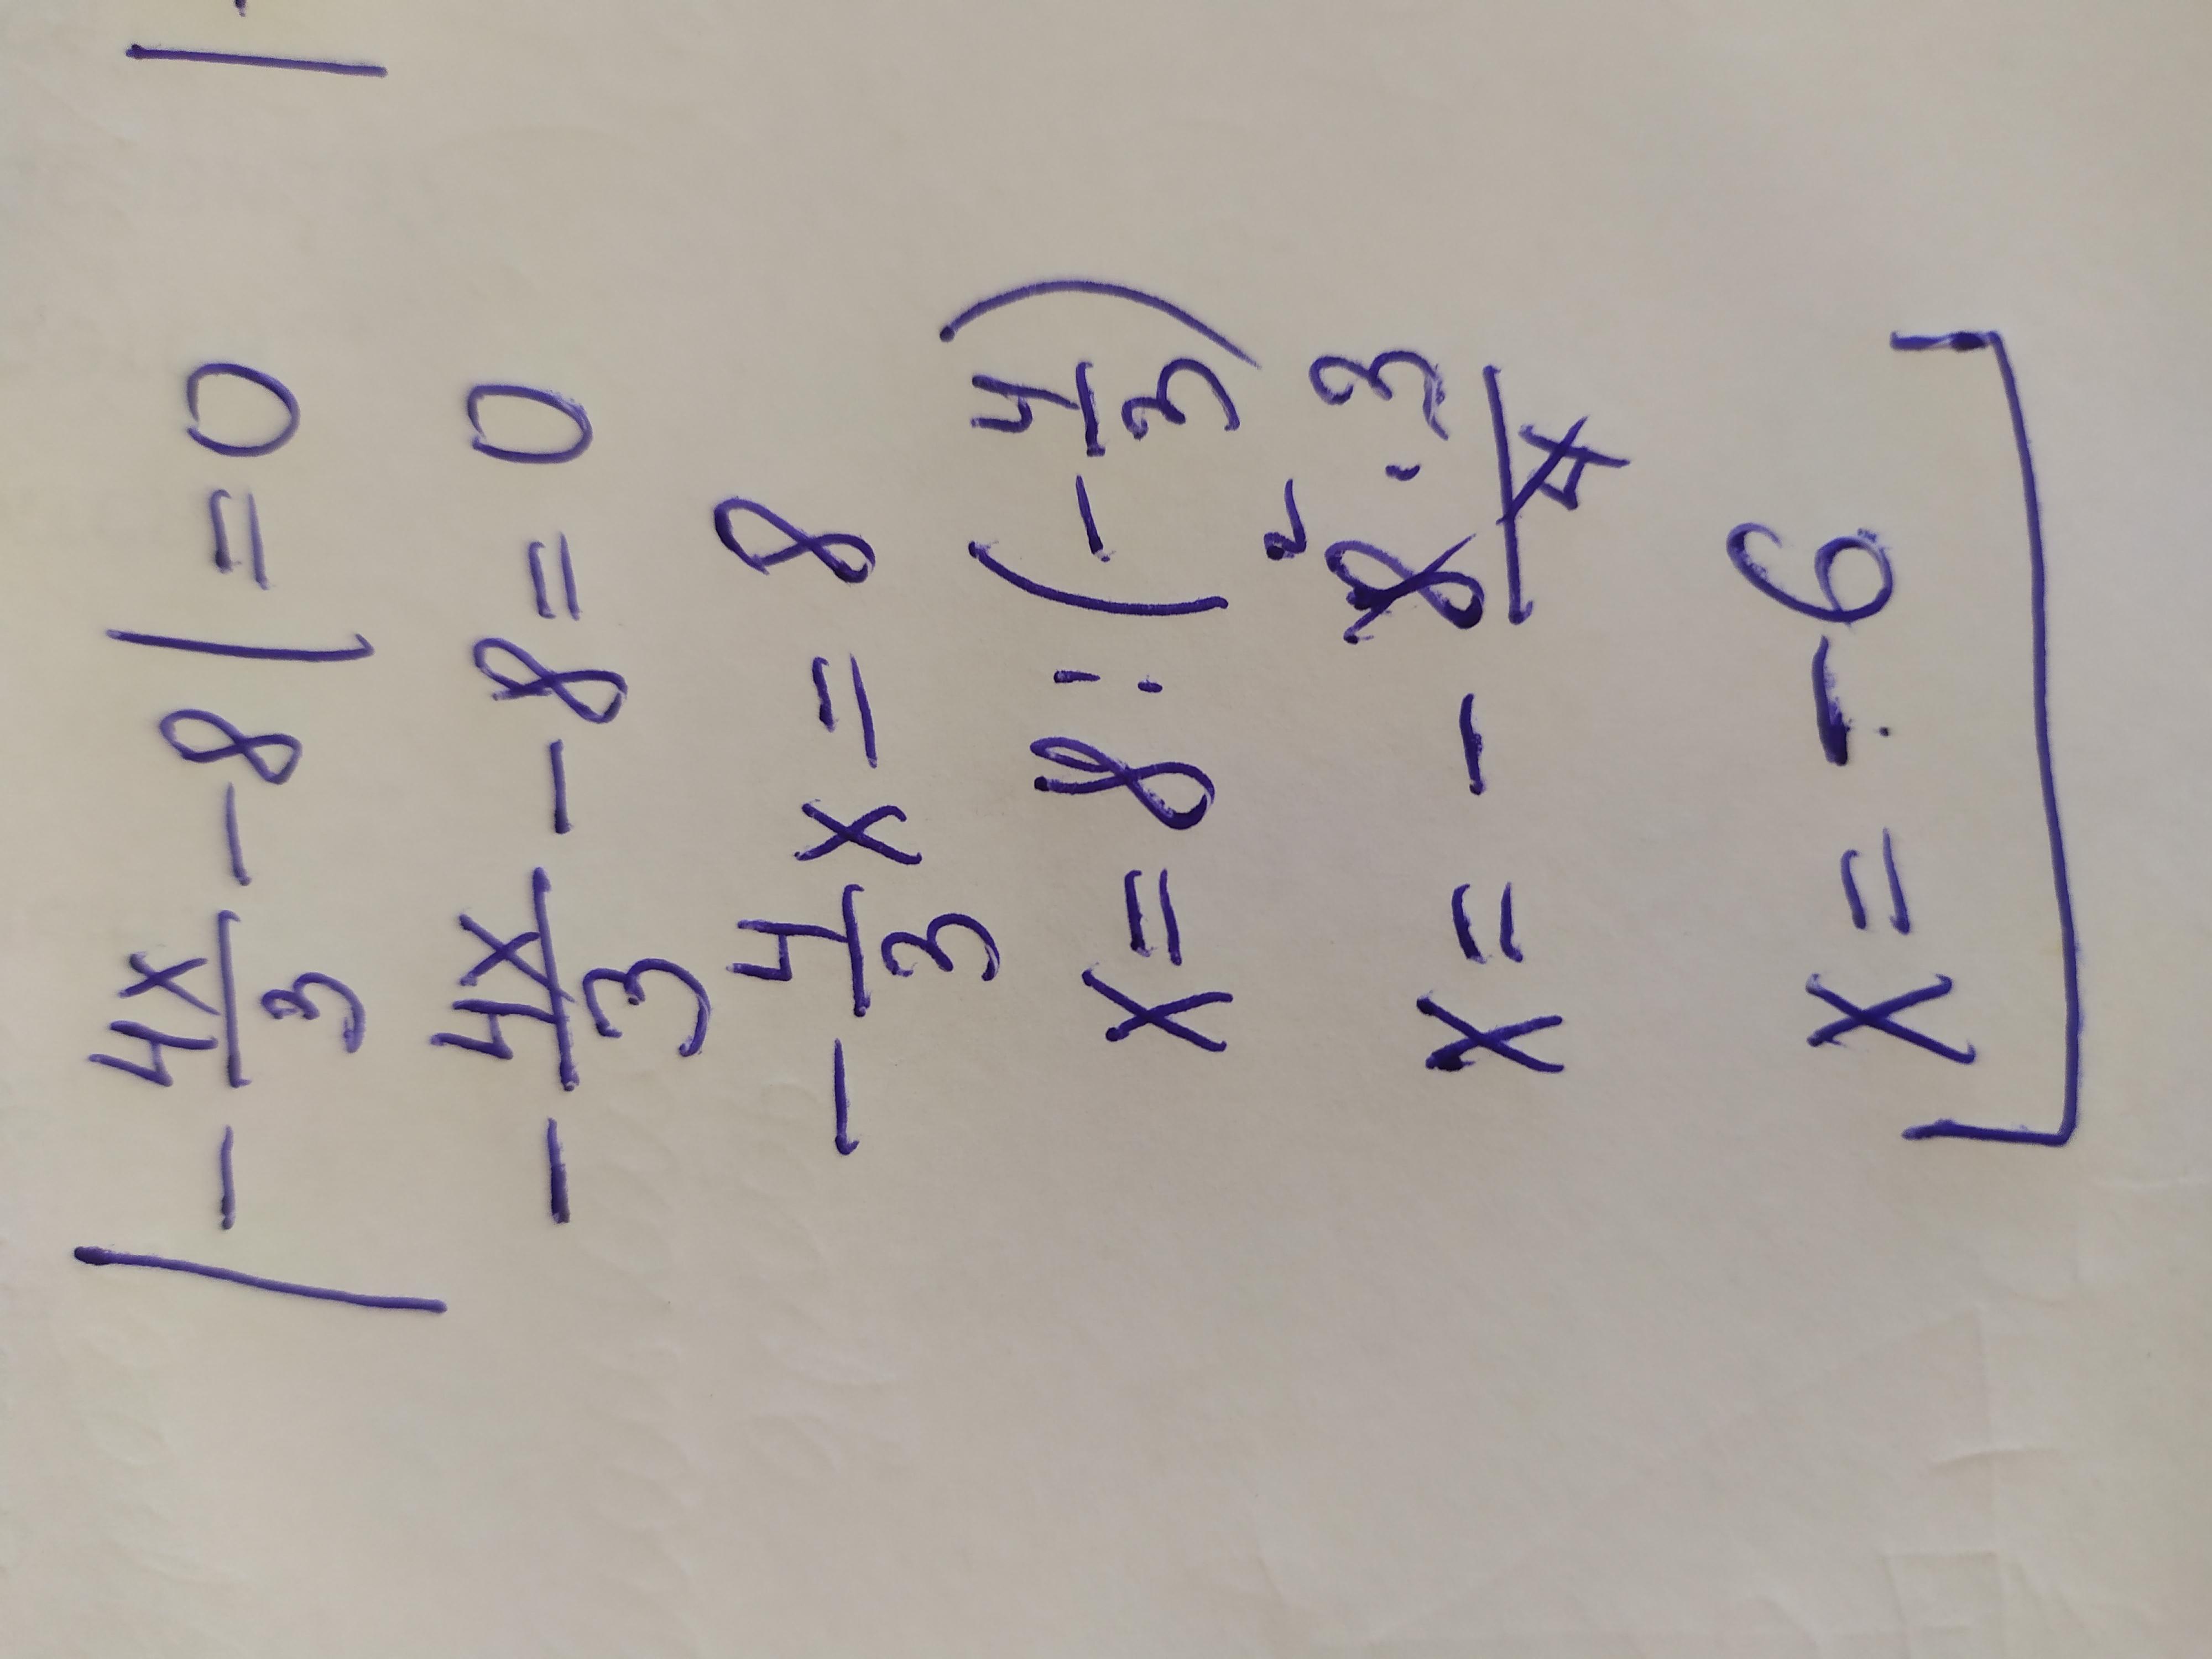 |-4x/3 - 8| = 0
-4x/3 - 8 = 0
-4/3 x = 8
x = 8 : (-4/3)
x = - 8·3/4 2
x = -6